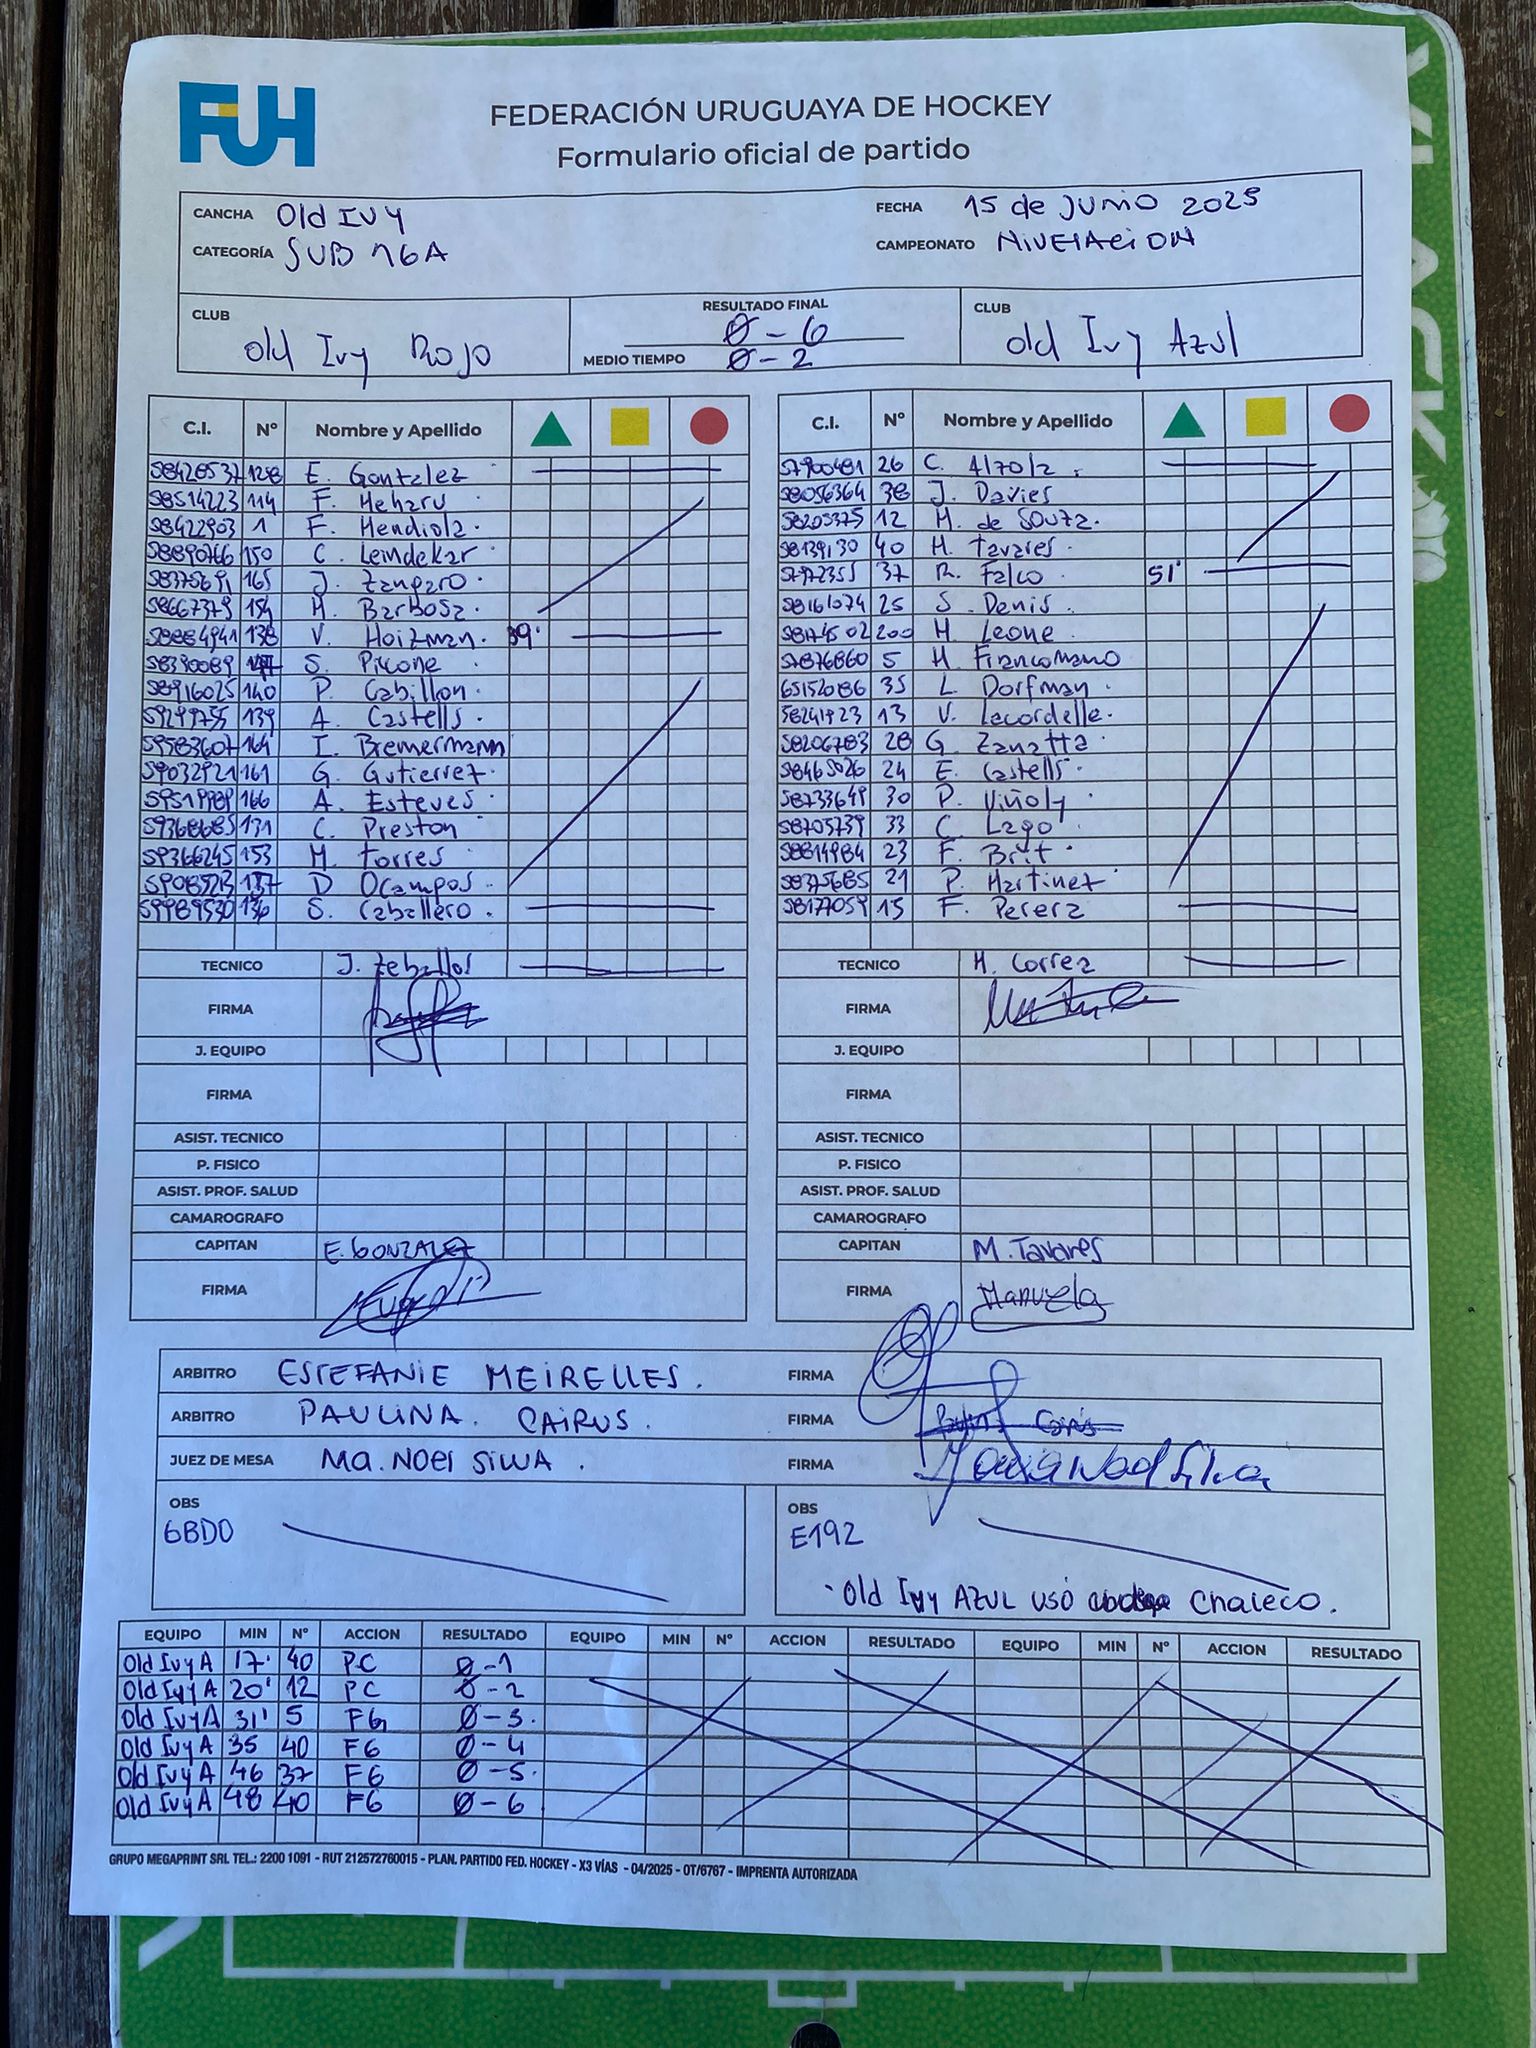 FUH
FEDERACIÓN URUGUAYA DE HOCKEY
Formulario oficial de partido
CANCHA Old IVY
FECHA 15 de JUNIO 2025
CATEGORÍA SUB 16A
CAMPEONATO NIVElACION
CLUB
Old Ivy ROJO
RESULTADO FINAL
0 - 6
MEDIO TIEMPO 0 - 2
CLUB
Old Ivy AZUl
C.I. Nº Nombre y Apellido
E. Gonzalez
114 F. Meharu
1 F. Mendiola.
150 C. Leindekar
165 J. Zangaro.
154 M. Barbosa.
138 V. Hoizman. 39'
S. Picone
140 P. Cabillon.
139 A. Castells.
164 I. Bremermann
161 G. Gutierrez.
166 A. Esteves.
131 C. Preston
59366245 153 M. Torres.
137 D. Ocampos.
59989530 136 S. Caballero.
TECNICO J. Zeballos
FIRMA
J. EQUIPO
FIRMA
ASIST. TECNICO
P. FISICO
ASIST. PROF. SALUD
CAMAROGRAFO
CAPITAN E. GONZALEZ
FIRMA
C.I. Nº Nombre y Apellido
57900481 26 C. Alzola.
58056364 38 J. Davies
58205375 12 M. de Souza.
58139130 40 M. Tavares.
57972355 37 R. Falco 51'
58161074 25 S. Denis.
58174502 200 M. Leone
57876860 5 M. Francomano
65152086 35 L. Dorfman.
58241923 13 V. Lacordelle.
58206783 28 G. Zanatta
58465026 24 E. Castells.
58733649 30 P. Viñoly
58705739 33 C. Lago
58814984 23 F. Brit.
58375685 21 P. Martinez
58177059 15 F. Perera
TECNICO M. Correa
FIRMA
J. EQUIPO
FIRMA
ASIST. TECNICO
P. FISICO
ASIST. PROF. SALUD
CAMAROGRAFO
CAPITAN M. Tavares
FIRMA Manuela
ARBITRO ESTEFANIE MEIRELLES. FIRMA
ARBITRO PAULINA. CAIRUS. FIRMA
JUEZ DE MESA Ma. NOEl SILVA. FIRMA Maria Noel Silva
OBS
6BD0
OBS
E192
· Old Ivy AZUL USÓ Chaleco.
EQUIPO MIN Nº ACCION RESULTADO EQUIPO MIN Nº ACCION RESULTADO EQUIPO MIN Nº ACCION RESULTADO
Old Ivy A 17' 40 PC 0 - 1
Old Ivy A 20' 12 PC 0 - 2
Old Ivy A 31' 5 FG 0 - 3.
Old Ivy A 35 40 FG 0 - 4
Old Ivy A 46 37 FG 0 - 5.
Old Ivy A 48 40 FG 0 - 6
GRUPO MEGAPRINT SRL TEL.: 2200 1091 - RUT 212572760015 - PLAN. PARTIDO FED. HOCKEY - X3 VÍAS - 04/2025 - OT/6767 - IMPRENTA AUTORIZADA